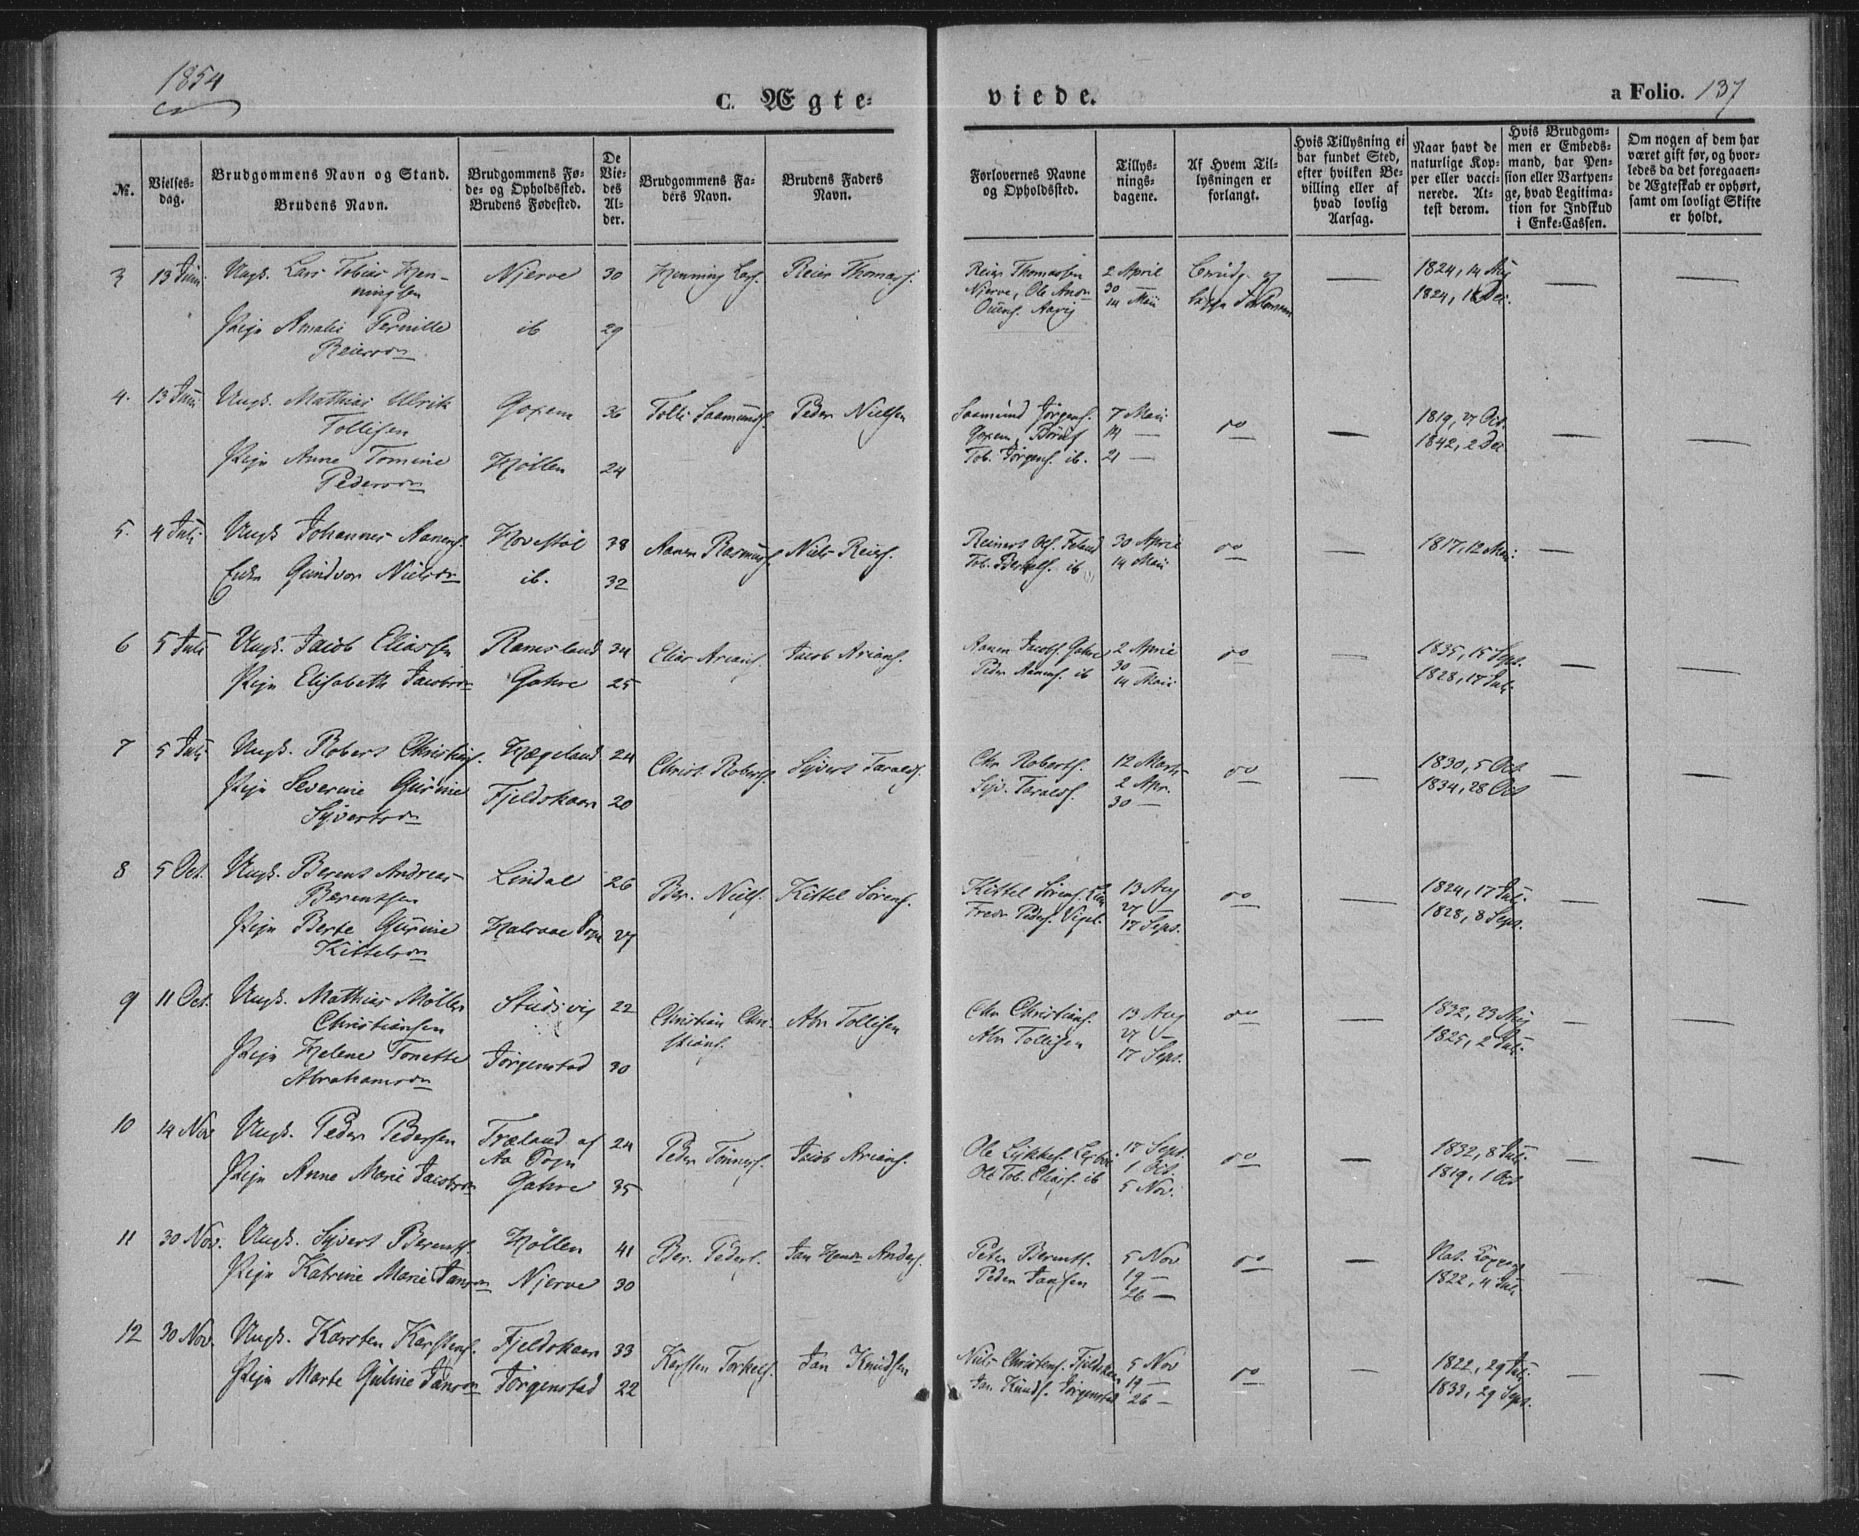 1854
C. Ægte-
viede.
a Folio. 137
№.
Vielses-
dag.
Brudgommens Navn og Stand.
Brudens Navn.
Brudgommens Fø-
de- og Opholdssted.
Brudens Fødested.
De
Vie-
des
Al-
der.
Brudgommens Fa-
ders Navn.
Brudens Faders
Navn.
Forlovernes Navne
og Opholdssted.
Tillys-
nings-
dagene.
Af Hvem Til-
lysningen er
forlangt.
Hvis Tillysning ei
har fundet Sted,
efter hvilken Be-
villing eller af
hvad lovlig
Aarsag.
Naar havt de
naturlige Kop-
per eller vacci-
nerede. At-
test derom.
Hvis Brudgom-
men er Embeds-
mand, har Pen-
sion eller Vartpen-
ge, hvad Legitima-
tion for Indskud
i Enke-Cassen.
Om nogen af dem har
været gift før, og hvor-
ledes da det foregaaen-
de Ægteskab er ophørt,
samt om lovligt Skifte
er holdt.
3 13 Juni Ungk. Lars Tobias Hen-
ningsen
Njerve 30 Henning Lars. Reier Thomass.
Pige Amalie Pernille
Reiersdn
ib 29
Reier Thomassen
Njerve, Ole Andr
2 April
30 —
14 Mai
1824, 14 Aug
4. 13 Juni Ungk. Mathias Ulrik
Tollisen
36 Tolli Saamunds. Peder Nielsen
Pige Anne Tomine
Pedersdn
Høllen 24
Saamund Jørgens.
Tob. Jørgens. ib.
7 Mai
14 —
21 —
do
1819, 27 Oct.
1842, 2 Dec
5. 4 Juli Ungk Johannes Aanens. Hovestøl 38 Aanen Rasmuss. Niels Reiers.
Enke Gundvor Nielsdn ib. 32
30 April
14 Mai
do
1817, 12 Mai
6 5 Juli Ungk. Jacob Eliassen Ramsland 34 Elias Arians. Jacob Arians.
Pige Elisabeth Jacobsdn Gahre 25
Aanen Jacobs. Gahre
Peder Aanens. ib
2 April
30 —
14 Mai
do
1835, 15 Sept.
1828, 17 Juli
7 5 Juli Ungk. Robert Christians. Hægeland 24 Christ. Roberts. Syvert Taralds.
Pige Severine Gurine
Syvertsdn
Fjeldskaar 20
Chr Roberts.
Syv. Taralds.
12 Marts
2 Apr.
30 —
do
1830, 5 Oct
1834, 28 Oct
8 5 Oct. Ungk. Berent Andreas
Berentsen
Lindal 26 Ber. Niels. Kittel Sørens.
Pige Berte Gurine
Kittelsdn
Halsaae Sogn 27
Kittel Sørens.
Fredr Peders. Vigel.
13 Aug
27 —
17 Sept.
do
1824, 17 Juli
1828, 8 Sept.
9 11 Oct. Ungk. Mathias Møller
Christiansen
Studsvig 22 Christian Chri-
stians.
Abr Tollisen
Pige Helene Tonette
Abrahamsdn
Jørgenstad 30
Chr Christians.
Abr Tollisen
13 Aug
27 —
17 Sept.
do
1832, 23 Aug
1825, 2 Juli
10 14 Nov Ungk. Peder Pedersen Træland af
Aa Sogn
24 Peder Tønness. Jacob Arians.
Pige Anne Marie Jacobsdn Gahre 35
Ole Tob. Elias. ib
17 Sept.
1 Oct.
5 Nov.
do
1832, 8 Juli
1819, 1 Oct
11 30 Nov. Ungk. Syvert Berents. Høllen 41 Ber. Peders. Jan Hendr Anders.
Pige Katrine Marie Jansdn Njerve 30
Peter Berents.
Peder Jansen
5 Nov
19 —
26 —
do
Nat. Kopper
1822, 4 Juli
12 30 Nov. Ungk. Karsten Karstens. Fjeldskaar 33 Karsten Torkels. Jan Knudsen
Pige Marte Guline Jansdn Jørgenstad 22
Niels Christens. Fjeldskaar
Jan Knuds. Jørgenstad
5 Nov
19 —
26 —
do
1822, 29 Juli
1833, 29 Sept.